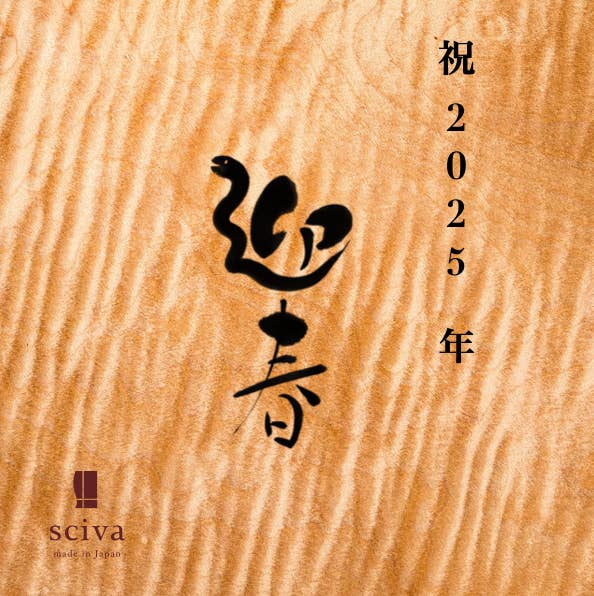 祝2025年
迎春
sciva
made in Japan